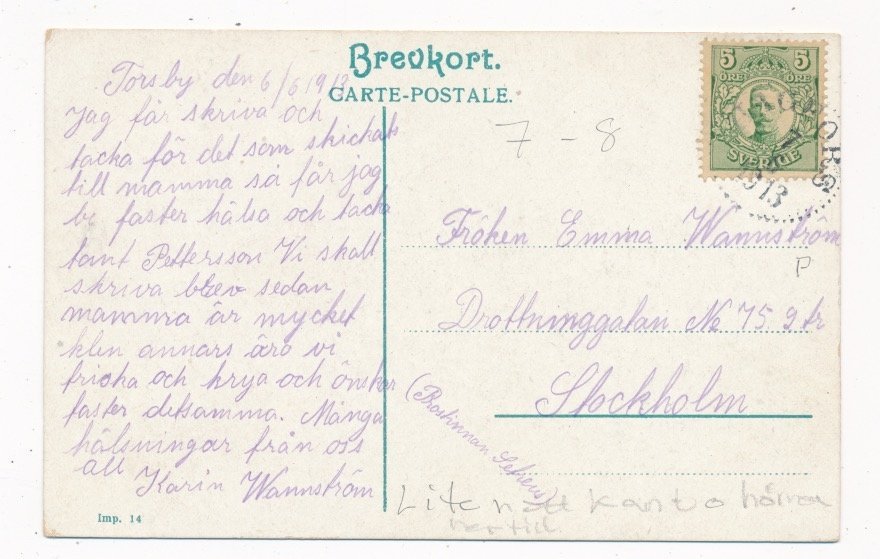 Brevkort.
CARTE-POSTALE.
5 5
ÖRE ÖRE
SVERIGE
1913
7 - 8
Torsby den 6/6 1913
Jag får skriva och
tacka för det som skickats
till mamma så får jag
be faster hälsa och tacka
tant Pettersson Vi skall
skriva brev sedan
mamma är mycket
klen annars äro vi
friska och krya och önskar
faster detsamma. Många
hälsningar från oss
all
Karin Wannström
Fröken Emma Wannström
P
Drottninggatan No 75 9 tr
Stockholm
Lite nött kant o hörnen
Imp. 14